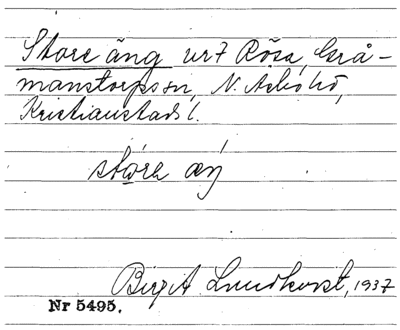 Store äng ur 7 Röså, Grå-
manstorps sn, N. Asbo hd,
Kristianstads l.
stóra æŋ
Birgit Lundkvist, 1937
Nr 5495.